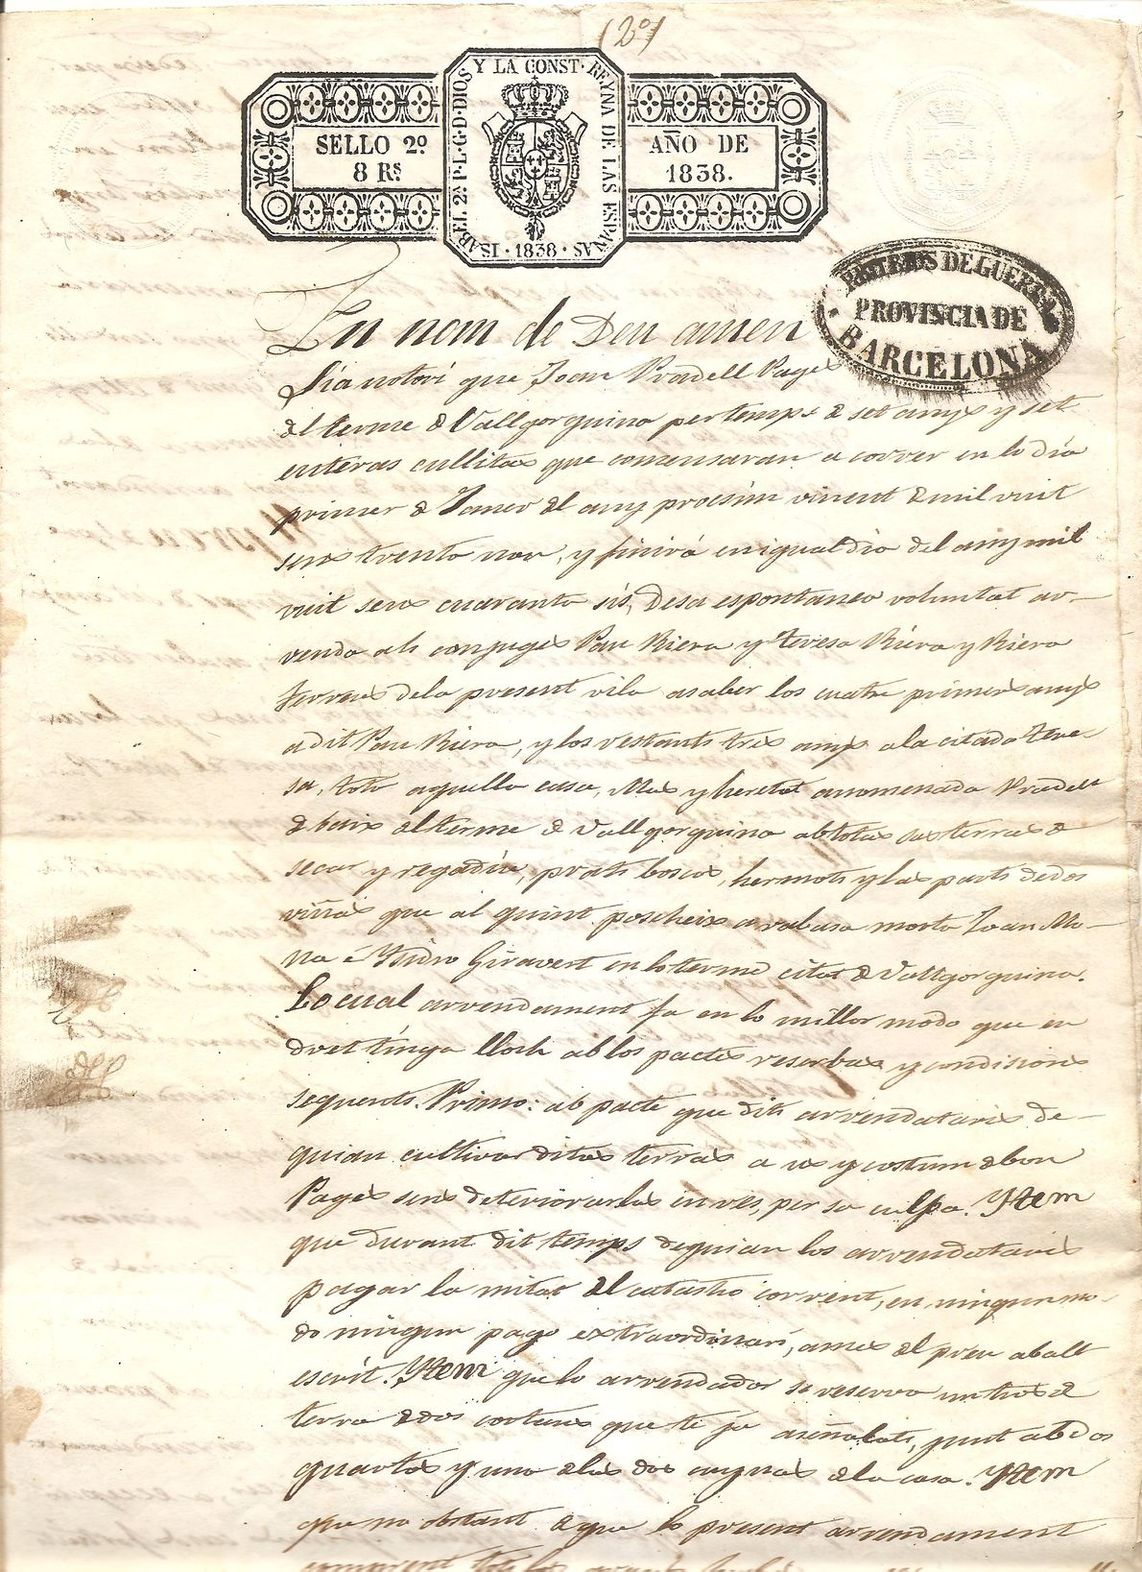 (2º)
ISABEL 2ª P. L. G. D. DIOS Y LA CONST. REYNA DE LAS ESPAÑAS · 1838 ·
SELLO 2º
8 Rs
AÑO DE
1838.
DE GUERRA
PROVINCIA DE
BARCELONA
En nom de Deu amen
Sia notori que Joan Pradell Pages
del terme de Vallgorguina per temps de set anys y set
enteras cullitas que comensaran a correr en lo dia
primer de Janer del any procsim vinent de mil vuit
sens trenta nou, y finirá en igual dia del any mil
vuit sens cuaranta sis, De sa espontanea voluntat ar-
renda als conjuges Pau Riera y Teresa Riera y Riera
de la present vila a saber los cuatre primers anys
a dit Pau Riera, y los restants tres anys a la citada Tere-
sa, tota aquella casa, Mas y heretat anomenada Pradell
de baix del terme de Vallgorguina ab totas sas terras de
seca y regadiu, prats boscos, hermots y las parts de dos
viñas que al quint posseheix a rabasa morta Joan Mo-
na é Ysidro Giravert en lo terme citat de Vallgorguina.
Lo cual arrendament fa en lo millor modo que en
dret tinga lloch ab los pactes reserbas y condisions
seguents. Primo: ab pacte que dits arrendataris de-
guian cultivar ditas terras a us y costum de bon
Pages sens deteriorarlas en res, per sa culpa. Ytem
que durant dit temps deguian los arrendataris
pagar la mitat del catastro corrent, en ningun mo-
do ningun pago extraordinari, a mes del preu aball
escrit. Ytem que lo arrendador se reserva un tros de
terra de dos cortans que te ja aseñalats, junt ab dos
quartos y una de las dos de la casa. Ytem
que no obstant de que lo present arrendament
comprent tots los